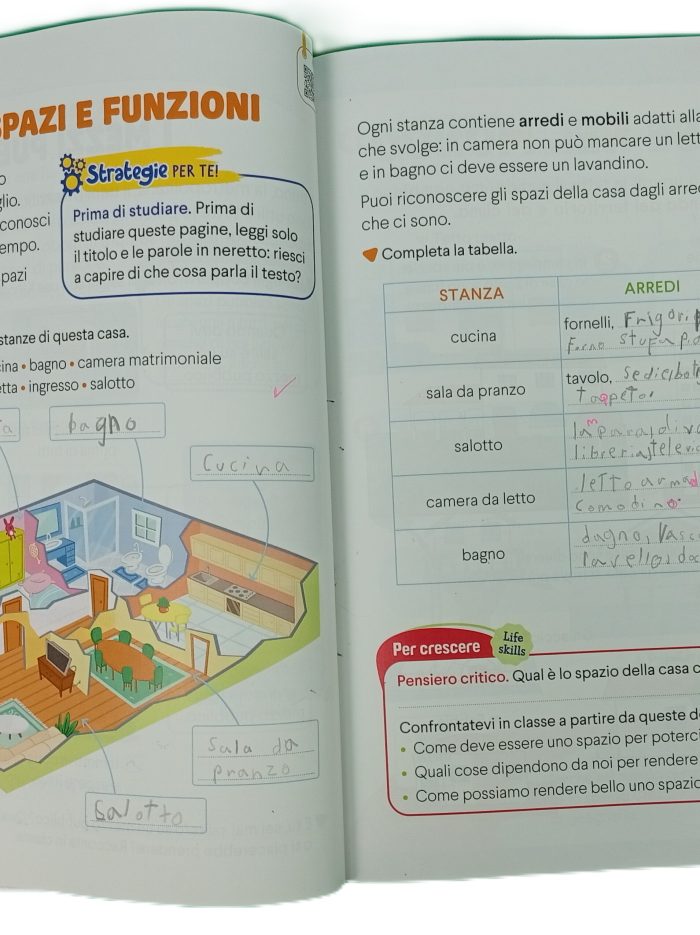 SPAZI E FUNZIONI
Strategie PER TE!
Prima di studiare. Prima di
studiare queste pagine, leggi solo
il titolo e le parole in neretto: riesci
a capire di che cosa parla il testo?
conosci
empo.
pazi
stanze di questa casa.
ina • bagno • camera matrimoniale
etta • ingresso • salotto
ta
bagno
Cucina
Sala da
pranzo
Salotto
Ogni stanza contiene arredi e mobili adatti alla
che svolge: in camera non può mancare un lett
e in bagno ci deve essere un lavandino.
Puoi riconoscere gli spazi della casa dagli arre
che ci sono.
Completa la tabella.
STANZA ARREDI
cucina fornelli, Frigori
Forno stufa
sala da pranzo tavolo, Sedie
salotto lampara, diva
libreria, telev
camera da letto letto arma
Comodino
bagno
lavello
Per crescere Life
skills
Pensiero critico. Qual è lo spazio della casa c
Confrontatevi in classe a partire da queste do
• Come deve essere uno spazio per poterci
• Quali cose dipendono da noi per rendere
• Come possiamo rendere bello uno spazio